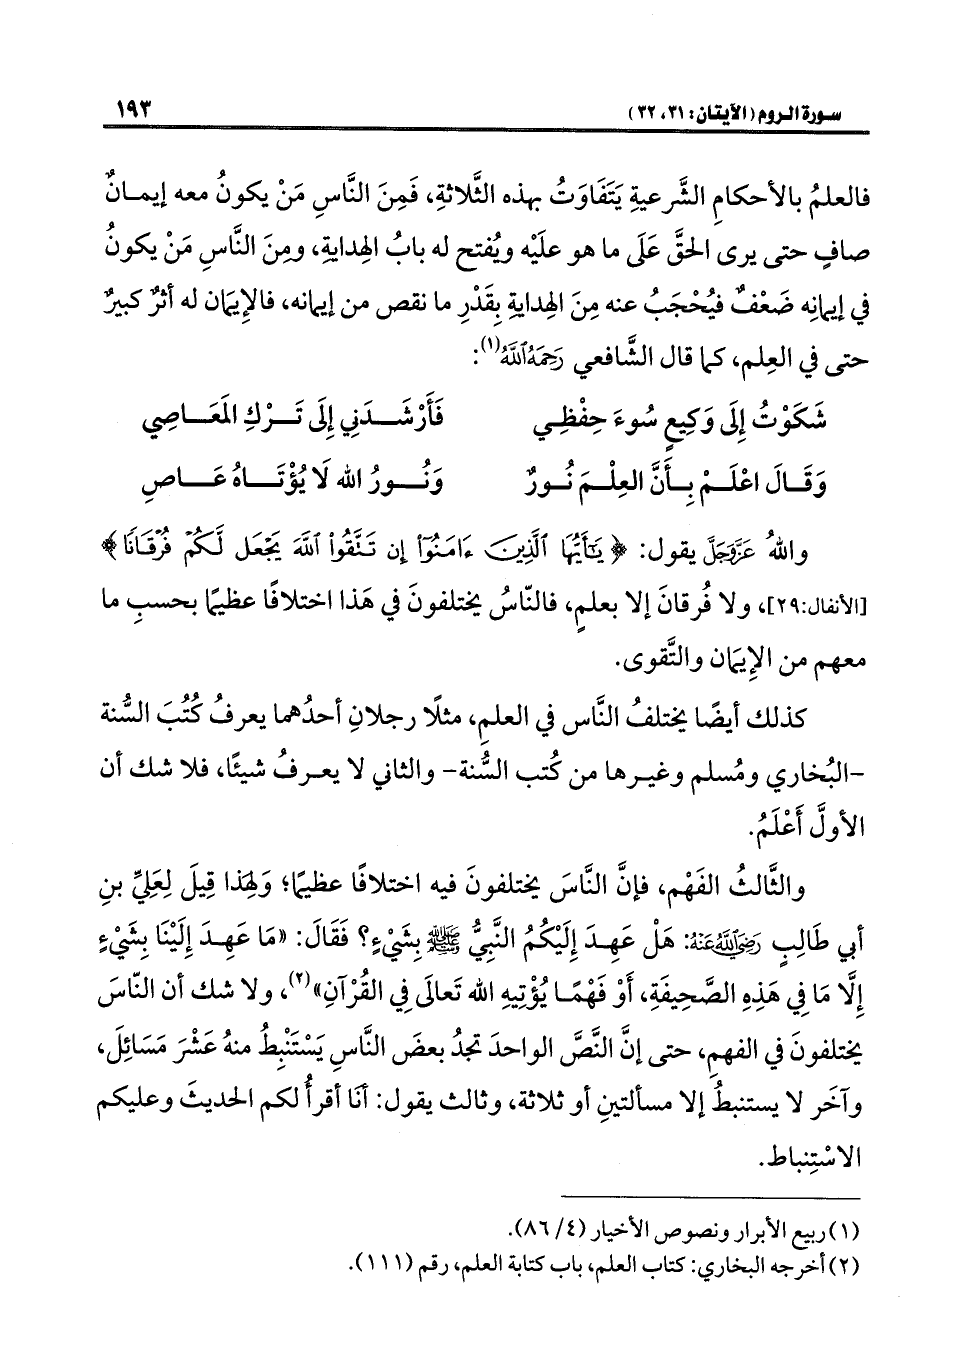 سورة الروم (الآيتان: ٣١، ٣٢) ١٩٣
فالعلمُ بالأحكامِ الشَّرعيةِ يَتَفَاوَتُ بهذه الثَّلاثةِ، فَمِنَ النَّاسِ مَنْ يكونُ معه إيمـانٌ
صافٍ حتى يرى الحقَّ عَلَى ما هو علَيْه ويُفتح له بابُ الهِدايةِ، ومِنَ النَّاسِ مَنْ يكونُ
في إيمانِه ضَعْفٌ فيُحْجَبُ عنه مِنَ الهِدايةِ بِقَدْرِ ما نقص من إيمانه، فالإيمَان له أثرٌ كبيرٌ
حتى في العِلم، كما قال الشَّافعي رَحِمَهُ ٱللَّهُ(١):
شَكَوْتُ إِلَى وَكِيعٍ سُوءَ حِفْظِـي فَأَرْشَــدَنِي إِلَى تَــرْكِ المَعَــاصِي
وَقَـالَ اعْلَـمْ بِـأَنَّ العِلْـمَ نُـورٌ وَنُــورُ الله لَا يُؤْتَــاهُ عَــاصِ
واللهُ عَزَّوَجَلَّ يقول: ﴿يَٰٓأَيُّهَا ٱلَّذِينَ ءَامَنُوٓاْ إِن تَتَّقُواْ ٱللَّهَ يَجْعَل لَّكُمْ فُرْقَانًا﴾
[الأنفال:٢٩]، ولا فُرقانَ إلا بعلمٍ، فالنَّاسُ يختلفونَ في هَذا اختلافًا عظيمًا بحسبِ ما
معهم من الإِيمَان والتَّقوى.
كذلك أيضًا يختلفُ النَّاس في العلمِ، مثلًا رجلانِ أحدُهما يعرفُ كُتُبَ السُّنة
-البُخاري ومُسلم وغيـرها من كُتب السُّنة- والثاني لا يعـرفُ شيئًا، فلا شك أن
الأولَّ أَعْلَمُ.
والثَّالثُ الفَهْم، فإنَّ النَّاسَ يختلفونَ فيه اختلافًا عظيمًا؛ وَلِهَذا قِيلَ لِعَلِيِّ بنِ
أبي طَالِبٍ رَضِيَ ٱللَّهُ عَنْهُ: هَلْ عَهِـدَ إِلَيْكُمُ النَّبِيُّ ﷺ بِشَيْءٍ؟ فَقَالَ: «مَا عَهِـدَ إِلَيْنَا بِشَيْءٍ
إِلَّا مَا فِي هَذِهِ الصَّحِيفَةِ، أَوْ فَهْمًـا يُؤْتِيهِ الله تَعَالَى فِي القُرْآنِ»(٢)، ولا شك أن النَّاسَ
يختلفونَ في الفهمِ، حتى إنَّ النَّصَّ الواحدَ تجدُ بعضَ النَّاسِ يَسْتَنْبِطُ منهُ عَشْرَ مَسَائِلَ،
وآخَر لا يستنبطُ إلا مسألتينِ أو ثلاثة، وثالث يقول: أنَا أقرأُ لكم الحديثَ وعليكم
الاسْتِنباط.
(١) ربيع الأبرار ونصوص الأخيار (٤/ ٨٦).
(٢) أخرجه البخاري: كتاب العلم، باب كتابة العلم، رقم (١١١).